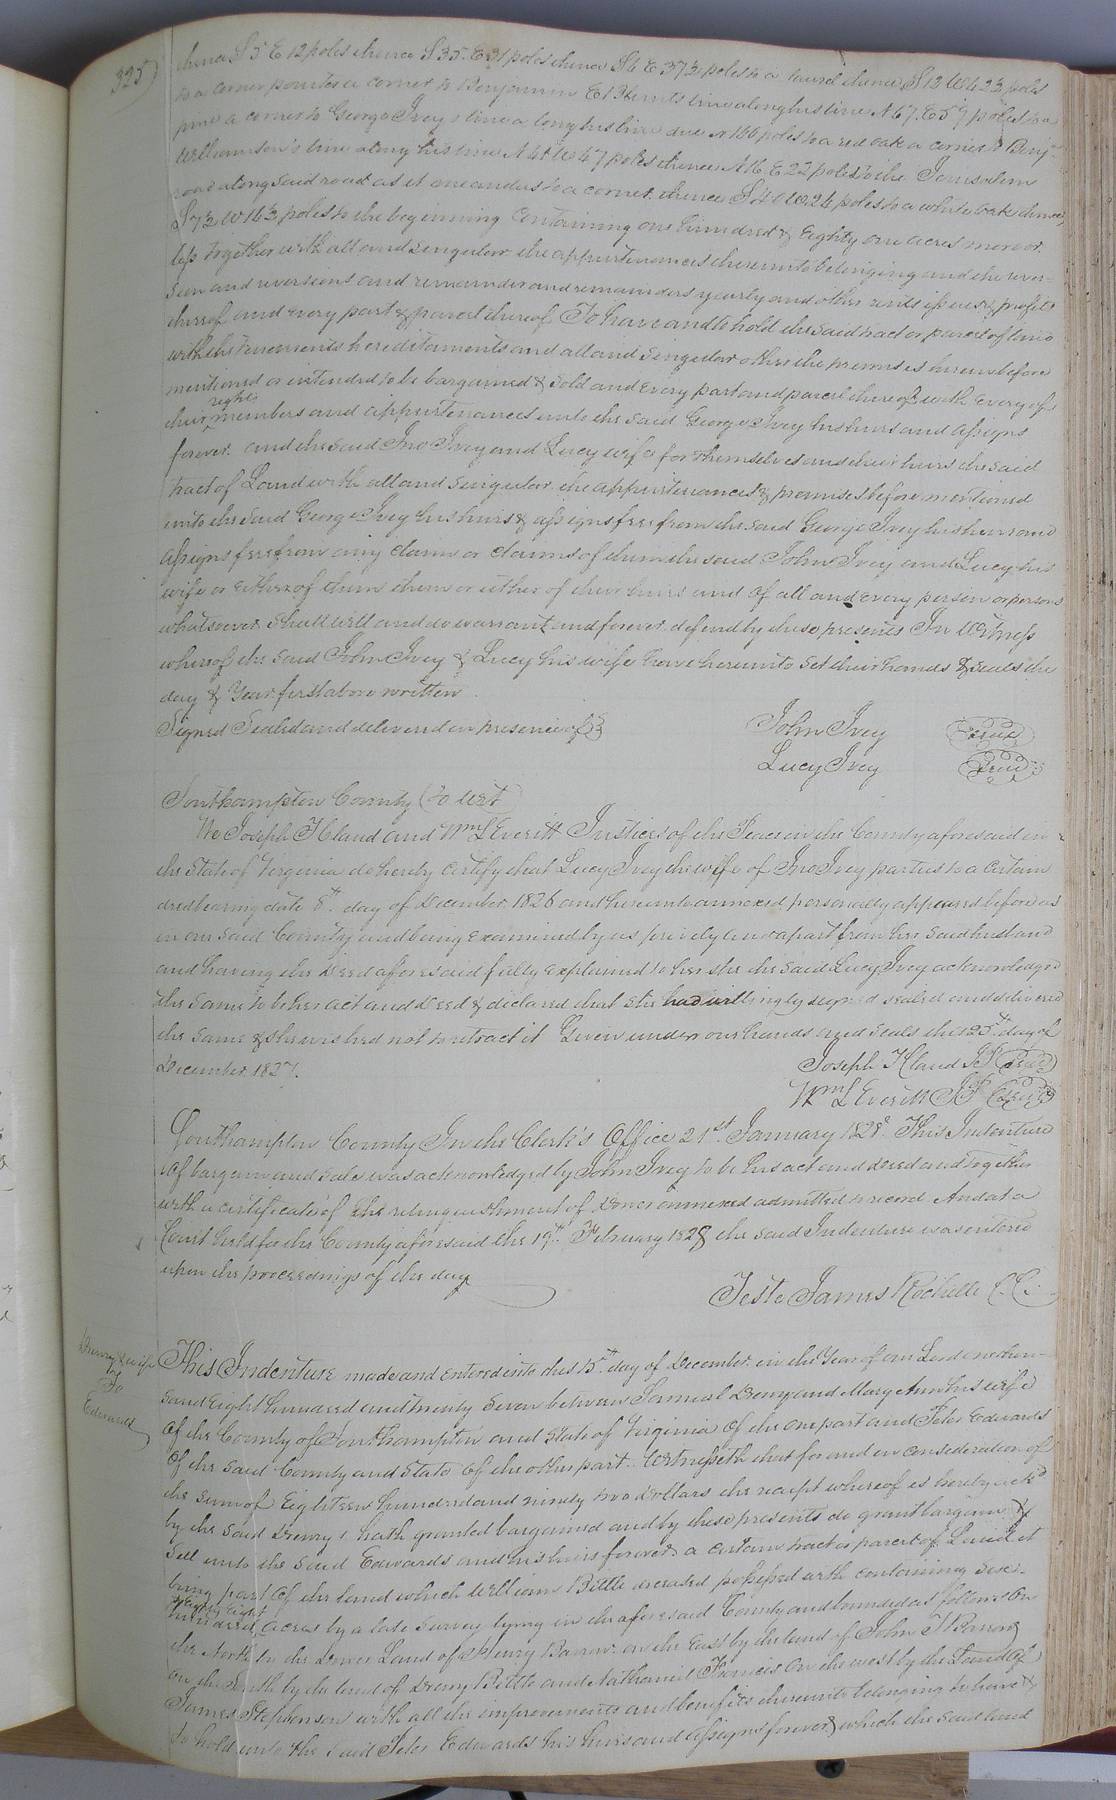 325)
thence S 5 E 12 poles thence S 35. E 31 poles thence S 6 E 37½ poles to a laurel thence S 13 W 423 poles
to a corner pointer a corner to Benjamin line along his line N 67. E 57 poles to a
pine a corner to George Ivey's line along his line due N 166 poles to a red oak a corner to Benjn
Williamson's line along his line N 47 poles thence N 16 E 22 poles to the Jerusalem
road along said road as it meanders to a corner thence S 40 W. 26 poles to a white oak thence
S 73 W 163 poles to the beginning Containing one hundred & Eighty one acres more or
less together with all and Singular the appurtenances thereunto belonging and the rever-
sion and reversions and remainder and remainders yearly and other rents issues & profits
thereof and every part & parcel thereof To have and to hold the said tract or parcel of land
with the tenements hereditaments and all and Singular other the premises herein before
mentioned or intended to be bargained & Sold and every part and parcel thereof with every of
rights
their members and appurtenances unto the said George Ivey his heirs and assigns
forever. and the said Jno Ivey and Lucy wife for themselves and their heirs the said
tract of Land with all and Singular the appurtenances & premises before mentioned
unto the said George Ivey his heirs & assigns free from the said George Ivey his heirs and
assigns free from any claim or claims of them the said John Ivey and Lucy his
wife or either of them them or either of their heirs and of all and every person or persons
whatsoever shall will and do warrant and forever defend by these presents In Witness
whereof the said John Ivey & Lucy his wife have hereunto Set their hands & seals the
day & Year first above written
Signed Sealed and delivered in presence of }
John Ivey (Seal)
Lucy Ivey (Seal)
Southampton County (to wit)
We Joseph T Claud and Wm L Everitt Justices of the Peace in the County aforesaid in
the State of Virginia do hereby certify that Lucy Ivey the wife of Jno Ivey parties to a certain
deed bearing date 8th. day of December 1826 and hereunto annexed personally appeared before us
in our said County and being Examined by us privily and apart from her said husband
and having the Deed aforesaid fully explained to her she the said Lucy Ivey acknowledged
the same to be her act and Deed & declared that she had willingly signed sealed and delivered
the same & she wished not to retract it Given under our hands and seals this 25th day of
December 1827.
Joseph T Claud JP (Seal)
Wm L Everitt JP (Seal)
Southampton County In the Clerk's Office 21st. January 1828 This Indenture
of bargain and sale was acknowledged by John Ivey to be his act and deed and together
with a certificate of the relinquishment of Dower annexed admitted to record And at a
Court held for the County aforesaid the 19th February 1828 the said Indenture was entered
upon the proceedings of the day
Teste James Rochelle C.C.
Drewry & wife
To
Edwards
This Indenture made and entered into this 15th day of December in the Year of our Lord one thou-
sand Eight hundred and twenty Seven between Samuel Drewry and Mary Ann his wife
of the County of Southampton and State of Virginia of the one part and Peter Edwards
of the said County and State of the other part. Witnesseth that for and in consideration of
the sum of Eighteen hundred and ninety two dollars the receipt whereof is hereby ackd
by the said Drewry hath granted bargained and by these presents do grant bargain &
Sell unto the said Edwards and his heirs forever a certain tract or parcel of Land it
being part of the land which William Bittle deceased possessed with containing
& Eighty Eight
hundred acres by a late survey lying in the aforesaid County and bounded as follows On
the North by the Dower Land of Henry Barrow on the East by the land of John T Barrow
on the South by the land of Drewry Bittle and Nathaniel Francis On the west by the Land of
James Stephenson with all the improvements and benefits thereunto belonging to have &
to hold unto the said Peter Edwards his heirs and assigns forever & which the said land